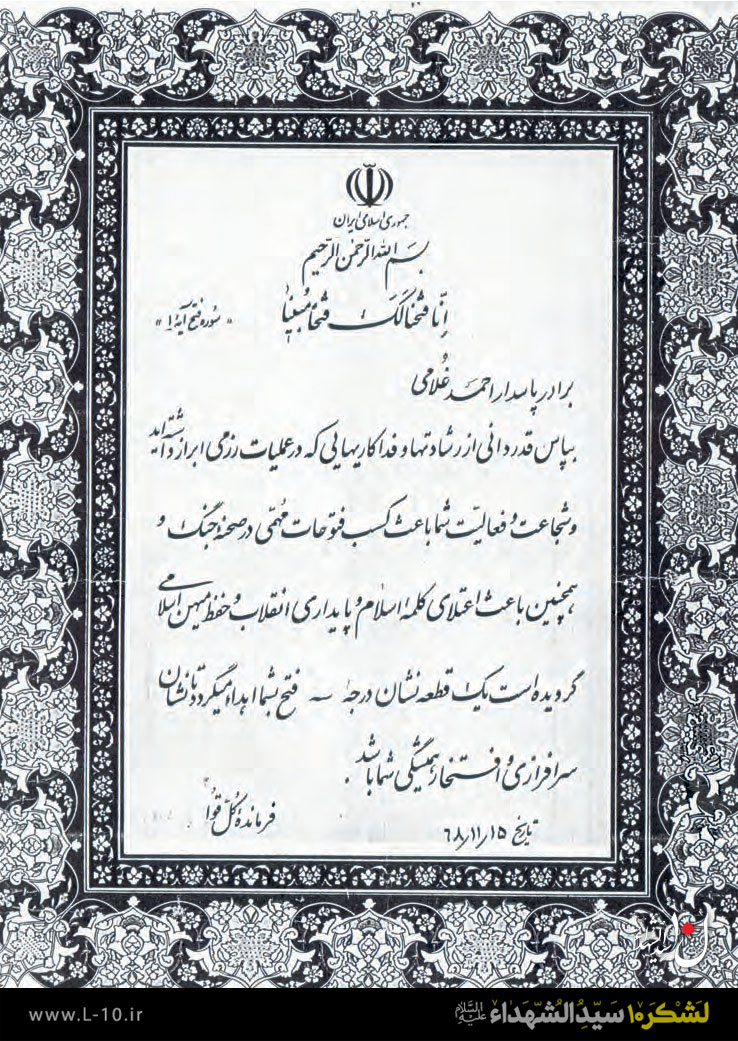 جمهوری اسلامی ایران
بسم الله الرّحمن الرّحیم
اِنّا فَتَحنا لَکَ فَتحاً مُبیناً « سُوره فتح آیهٔ ۱ »
برادر پاسدار احمد غُلامی
بپاس قدردانی از رشادتها و فداکاریهایی که در عملیات رزمی ابراز داشته‌اید
و شجاعت و فعالیّت شما باعث کسب فتوحات مُهمّی در صحنهٔ جنگ و
همچنین باعث اعتلای کلمهٔ اسلام و پایداری انقلاب و حفظ میهن اسلامی
گردیده است یک قطعه نشان درجهٔ ــ فتح بشما اهداء میگردد تا نشان
سرافرازی و افتخار همیشگی شما باشد .
فرماندهٔ کُلّ قُوا
تاریخ ۶۸/۱۱/۱۵
www.L-10.ir
لَشکر۱۰ سَیِّدُالشُّهَداء عَلَیهِ السَّلام